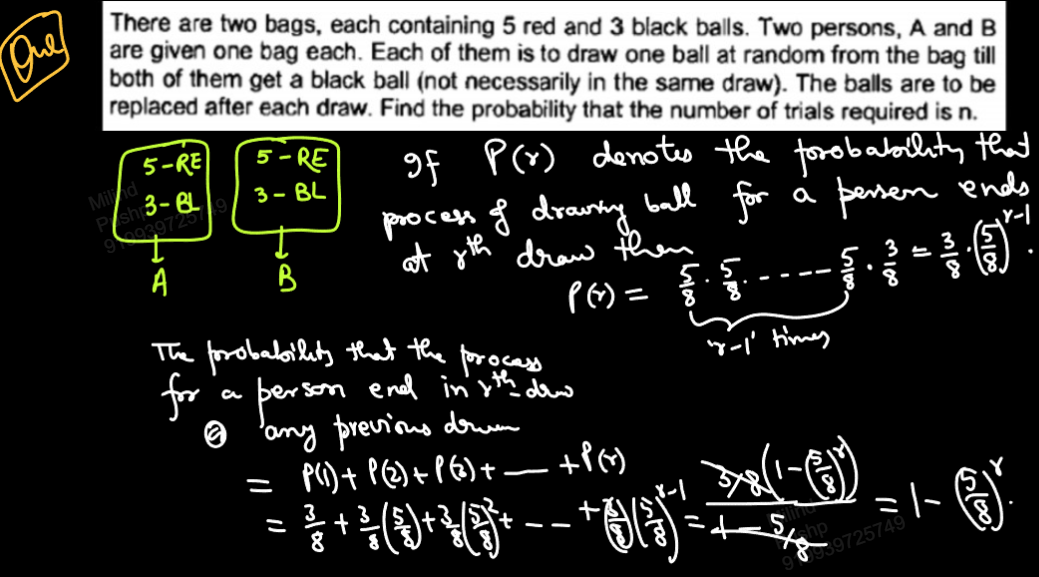 Que
There are two bags, each containing 5 red and 3 black balls. Two persons, A and B
are given one bag each. Each of them is to draw one ball at random from the bag till
both of them get a black ball (not necessarily in the same draw). The balls are to be
replaced after each draw. Find the probability that the number of trials required is n.
5-RE
3-BL
A
5-RE
3-BL
B
If P(r) denotes the probability that
process of drawing ball for a person ends
at rth draw then
P(r) = 5/8 · 5/8 · ----- 5/8 · 3/8 = 3/8 · (5/8)^(r-1).
'r-1' times
The probability that the process
for a person end in rth draw
any previous draw
= P(1) + P(2) + P(3) + — + P(r)
= 3/8 + 3/8 (5/8) + 3/8 (5/8)^2 + --- + (3/8)(5/8)^(r-1) = 3/8 (1-(5/8)^r) / 1-5/8 = 1-(5/8)^r.
Milind
Pushp
919939725749
Milind
Pushp
919939725749